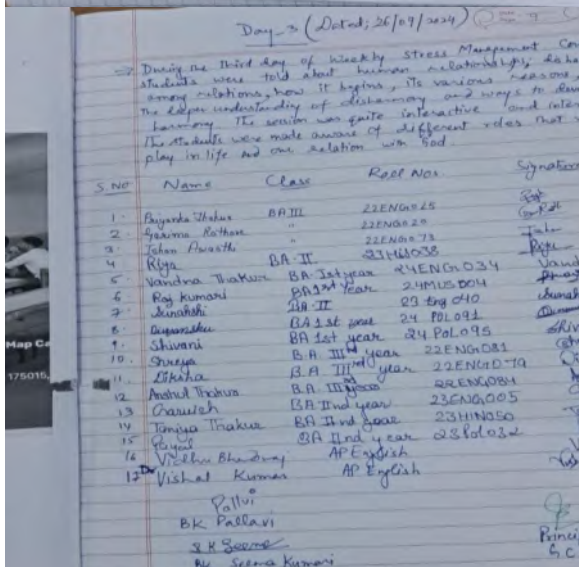 Day-3 (Dated; 26/07/2024)
⇒ During the third day of weekly Stress Management
students were told about human relationship,
among relations, how it begins, its various reasons,
the deeper understanding of disharmony and ways to
harmony The session was quite interactive and
The students were made aware of different roles that
play in life and our relation with God.
S.No Name Class Roll Nos Signature
1. Priyanka Thakur BA III 22ENG025
2. Garima Rathore " 22ENG020
3. Ishan Awasthi " 22ENG073
4 Riya BA-II 23HIS038
5 Vandna Thakur BA Ist year 24ENG034
6 Raj kumari BA 1st year 24MUS004
7 BA-II 23 Eng 040
8. BA 1st year 24 POL091
9. Shivani BA 1st year 24 POL095
10. Shreya B.A IIIrd year 22ENG081
11. Diksha B.A IIIrd year 22ENG079
12 Anshul Thakur BA III year 22ENG084
13 BA IInd year 23ENG005
14 Taniya Thakur BA IInd year 23HIN050
15 Payal BA IInd year 23Pol032
16 Vidhu Bhardwaj AP English
17 Dr Vishal Kumar AP English
Pallvi
BK Pallavi
S K Seema
BK Seema Kumari
Map Ca
175015,